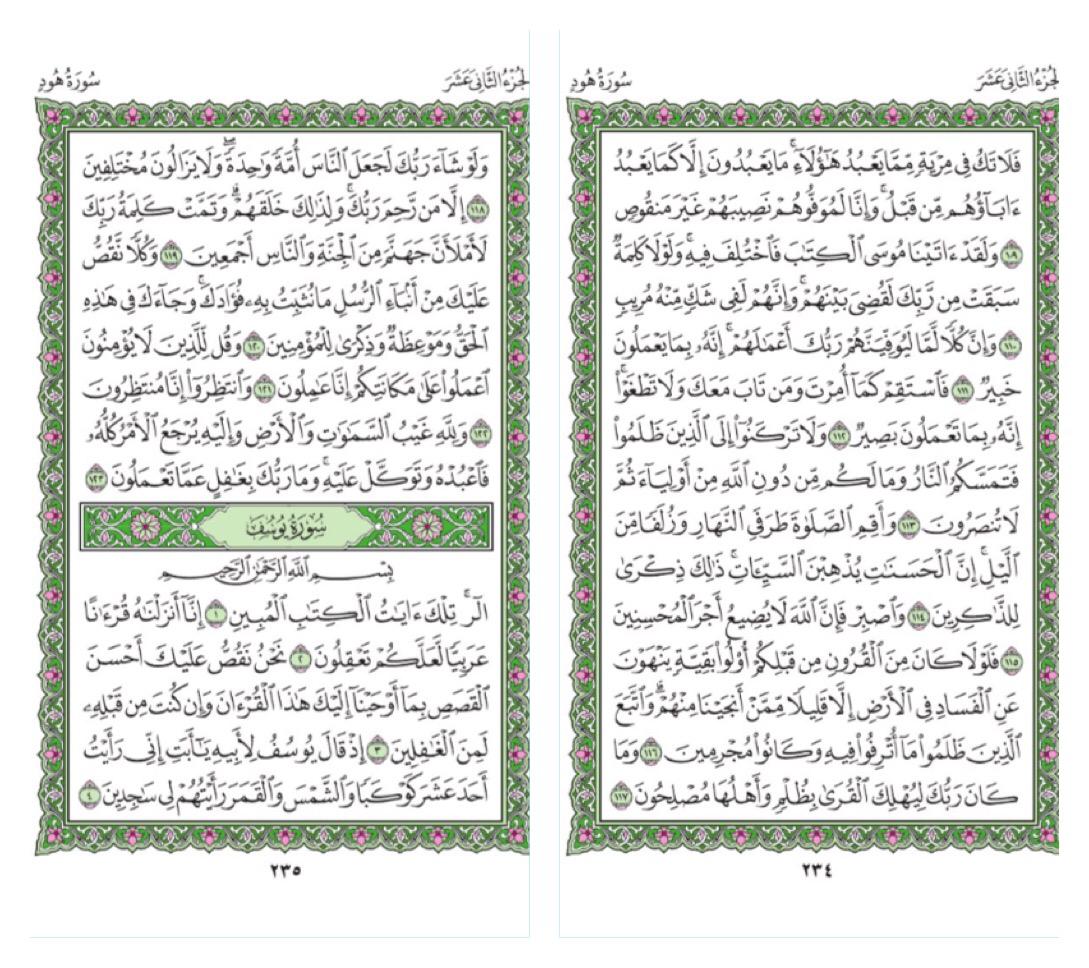 الجُزْءُ الثَّانِي عَشَرَ
سُورَةُ هُودٍ
فَلَا تَكُ فِي مِرْيَةٍ مِّمَّا يَعْبُدُ هَٰٓؤُلَآءِۚ مَا يَعْبُدُونَ إِلَّا كَمَا يَعْبُدُ
ءَابَآؤُهُم مِّن قَبْلُۚ وَإِنَّا لَمُوَفُّوهُمْ نَصِيبَهُمْ غَيْرَ مَنقُوصٍ
١٠٩ وَلَقَدْ ءَاتَيْنَا مُوسَى ٱلْكِتَٰبَ فَٱخْتُلِفَ فِيهِۚ وَلَوْلَا كَلِمَةٌ
سَبَقَتْ مِن رَّبِّكَ لَقُضِيَ بَيْنَهُمْۚ وَإِنَّهُمْ لَفِي شَكٍّ مِّنْهُ مُرِيبٍ
١١٠ وَإِنَّ كُلًّا لَّمَّا لَيُوَفِّيَنَّهُمْ رَبُّكَ أَعْمَٰلَهُمْۚ إِنَّهُۥ بِمَا يَعْمَلُونَ
خَبِيرٌ ١١١ فَٱسْتَقِمْ كَمَآ أُمِرْتَ وَمَن تَابَ مَعَكَ وَلَا تَطْغَوْا۟ۚ
إِنَّهُۥ بِمَا تَعْمَلُونَ بَصِيرٌ ١١٢ وَلَا تَرْكَنُوٓا۟ إِلَى ٱلَّذِينَ ظَلَمُوا۟
فَتَمَسَّكُمُ ٱلنَّارُ وَمَا لَكُم مِّن دُونِ ٱللَّهِ مِنْ أَوْلِيَآءَ ثُمَّ
لَا تُنصَرُونَ ١١٣ وَأَقِمِ ٱلصَّلَوٰةَ طَرَفَيِ ٱلنَّهَارِ وَزُلَفًا مِّنَ
ٱلَّيْلِۚ إِنَّ ٱلْحَسَنَٰتِ يُذْهِبْنَ ٱلسَّيِّـَٔاتِۚ ذَٰلِكَ ذِكْرَىٰ
لِلذَّٰكِرِينَ ١١٤ وَٱصْبِرْ فَإِنَّ ٱللَّهَ لَا يُضِيعُ أَجْرَ ٱلْمُحْسِنِينَ
١١٥ فَلَوْلَا كَانَ مِنَ ٱلْقُرُونِ مِن قَبْلِكُمْ أُو۟لُوا۟ بَقِيَّةٍ يَنْهَوْنَ
عَنِ ٱلْفَسَادِ فِي ٱلْأَرْضِ إِلَّا قَلِيلًا مِّمَّنْ أَنجَيْنَا مِنْهُمْۗ وَٱتَّبَعَ
ٱلَّذِينَ ظَلَمُوا۟ مَآ أُتْرِفُوا۟ فِيهِ وَكَانُوا۟ مُجْرِمِينَ ١١٦ وَمَا
كَانَ رَبُّكَ لِيُهْلِكَ ٱلْقُرَىٰ بِظُلْمٍ وَأَهْلُهَا مُصْلِحُونَ ١١٧
٢٣٤
الجُزْءُ الثَّانِي عَشَرَ
سُورَةُ هُودٍ
وَلَوْ شَآءَ رَبُّكَ لَجَعَلَ ٱلنَّاسَ أُمَّةً وَٰحِدَةًۖ وَلَا يَزَالُونَ مُخْتَلِفِينَ
١١٨ إِلَّا مَن رَّحِمَ رَبُّكَۚ وَلِذَٰلِكَ خَلَقَهُمْۗ وَتَمَّتْ كَلِمَةُ رَبِّكَ
لَأَمْلَأَنَّ جَهَنَّمَ مِنَ ٱلْجِنَّةِ وَٱلنَّاسِ أَجْمَعِينَ ١١٩ وَكُلًّا نَّقُصُّ
عَلَيْكَ مِنْ أَنۢبَآءِ ٱلرُّسُلِ مَا نُثَبِّتُ بِهِۦ فُؤَادَكَۚ وَجَآءَكَ فِي هَٰذِهِ
ٱلْحَقُّ وَمَوْعِظَةٌ وَذِكْرَىٰ لِلْمُؤْمِنِينَ ١٢٠ وَقُل لِّلَّذِينَ لَا يُؤْمِنُونَ
ٱعْمَلُوا۟ عَلَىٰ مَكَانَتِكُمْ إِنَّا عَٰمِلُونَ ١٢١ وَٱنتَظِرُوٓا۟ إِنَّا مُنتَظِرُونَ
١٢٢ وَلِلَّهِ غَيْبُ ٱلسَّمَٰوَٰتِ وَٱلْأَرْضِ وَإِلَيْهِ يُرْجَعُ ٱلْأَمْرُ كُلُّهُۥ
فَٱعْبُدْهُ وَتَوَكَّلْ عَلَيْهِۚ وَمَا رَبُّكَ بِغَٰفِلٍ عَمَّا تَعْمَلُونَ ١٢٣
سُورَةُ يُوسُفَ
بِسْمِ ٱللَّهِ ٱلرَّحْمَٰنِ ٱلرَّحِيمِ
الٓرۚ تِلْكَ ءَايَٰتُ ٱلْكِتَٰبِ ٱلْمُبِينِ ١ إِنَّآ أَنزَلْنَٰهُ قُرْءَٰنًا
عَرَبِيًّا لَّعَلَّكُمْ تَعْقِلُونَ ٢ نَحْنُ نَقُصُّ عَلَيْكَ أَحْسَنَ
ٱلْقَصَصِ بِمَآ أَوْحَيْنَآ إِلَيْكَ هَٰذَا ٱلْقُرْءَانَ وَإِن كُنتَ مِن قَبْلِهِۦ
لَمِنَ ٱلْغَٰفِلِينَ ٣ إِذْ قَالَ يُوسُفُ لِأَبِيهِ يَٰٓأَبَتِ إِنِّي رَأَيْتُ
أَحَدَ عَشَرَ كَوْكَبًا وَٱلشَّمْسَ وَٱلْقَمَرَ رَأَيْتُهُمْ لِي سَٰجِدِينَ ٤
٢٣٥